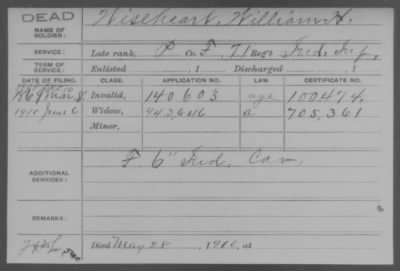 DEAD
NAME OF SOLDIER: Wiseheart, William H.
SERVICE: Late rank, P Co. F, 71 Reg't Ind. Inf.
TERM OF SERVICE: Enlisted , 1 Discharged , 1
DATE OF FILING. CLASS. APPLICATION NO. LAW. CERTIFICATE NO.
1869 Mar. 8 Invalid, 140603 age 100474,
1910 June 6 Widow, a 705,361
Minor,
F. 6" Ind. Cav.
ADDITIONAL SERVICES:
REMARKS:
Died May 28, 1910, at